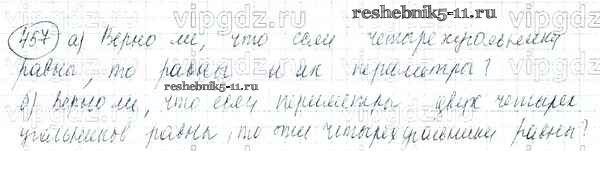 reshebnik5-11.ru
757 а) Верно ли, что если четырехугольники
равны, то равны и их периметры?
reshebnik5-11.ru
б) Верно ли, что если периметры двух четырех
угольников равны, то эти четырехугольники равны?
vipgdz.ru